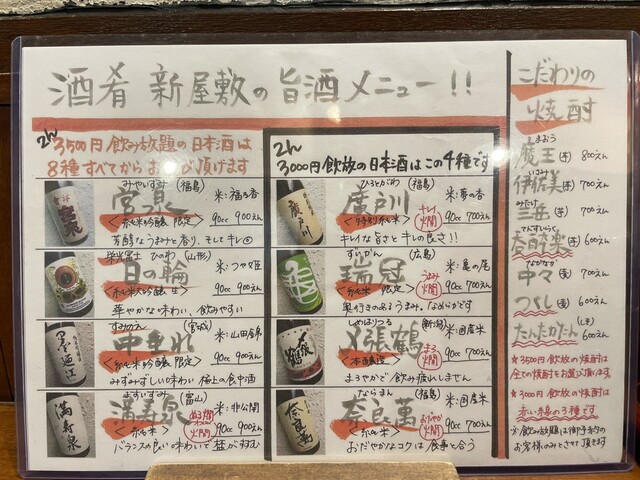 酒肴 新屋敷の旨酒メニュー!!
2h
3500円 飲み放題の日本酒は
8種すべてからお選び頂けます
みやいずみ (福島)
米:福乃香
宮泉
<純米吟醸 限定>
90cc 900えん
芳醇なうまみと香り、そしてキレ◎
栄光冨士 ひのわ (山形)
米:つや姫
日の輪
<純米大吟醸 生>
90cc 900えん
華やかな味わい、飲みやすい
(宮城)
米:山田錦
<純米吟醸 限定>
90cc 900えん
みずみずしい味わい 極上の食中酒
ますいずみ (富山)
米:非公開
満寿泉
<純米>
90cc 900えん
バランスの良い味わいで盃がすすむ
2h
3000円 飲放の日本酒はこの4種です
ひろとがわ (福島)
米:夢の香
廣戸川
<特別純米>
キレ
燗
90cc 700えん
キレイな旨さとキレの良さ!!
ずいかん (広島)
米:亀の尾
瑞冠
<純米 限定>
うまみ
燗
90cc 900えん
奥行きのあるうまみ、なめらかです
しめはりつる (新潟)
米:国産米
〆張鶴
<本醸造>
まろ
燗
90cc 700えん
まろやかで飲み疲れしません
ならまん (福島)
米:国産米
奈良萬
<純米>
おだやか
燗
90cc 700えん
おだやかなコクは食事と合う
こだわりの
焼酎
まおう
魔王 (芋) 800えん
いさみ
伊佐美 (芋) 700えん
みたけ
三岳 (芋) 700えん
600えん
なかなか
中々 (麦) 700えん
つくし (麦) 600えん
たんたかたん (しそ) 600えん
★3500円飲放の焼酎は
全ての焼酎をお選び頂けます
★3000円飲放の焼酎は
赤い線の3種です
※飲み放題は御予約の
お客様のみとさせて頂きます